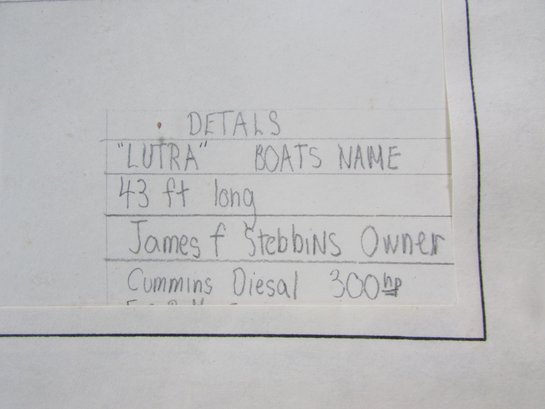 DETALS
"LUTRA" BOATS NAME
43 ft long
James f Stebbins Owner
Cummins Diesal 300hp